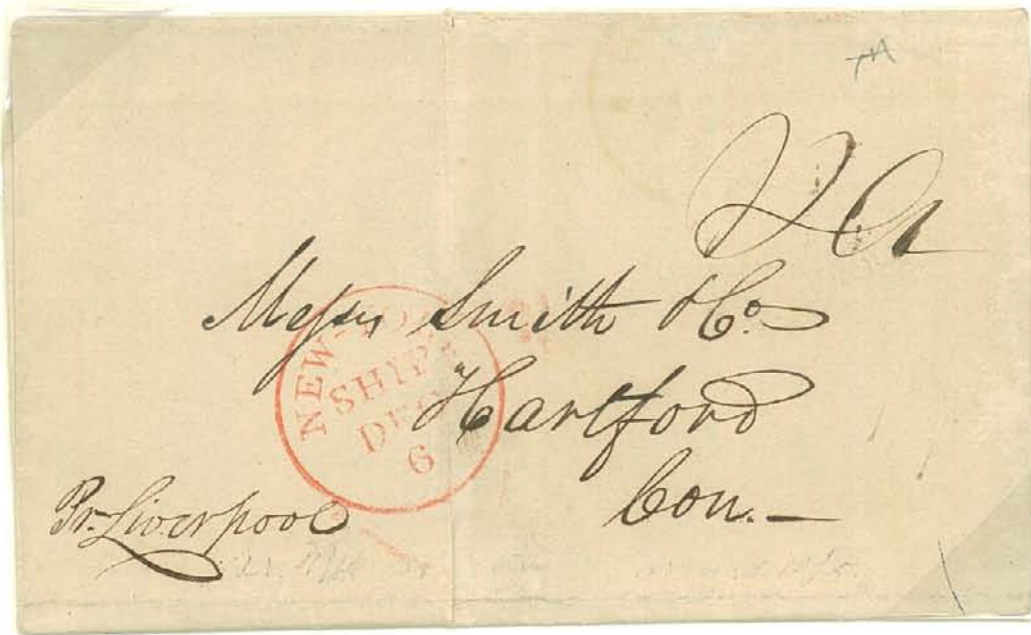 Messrs Smith & Co.
Hartford
Con.
NEW-YORK
SHIP
DEC
6
Pr. Liverpool